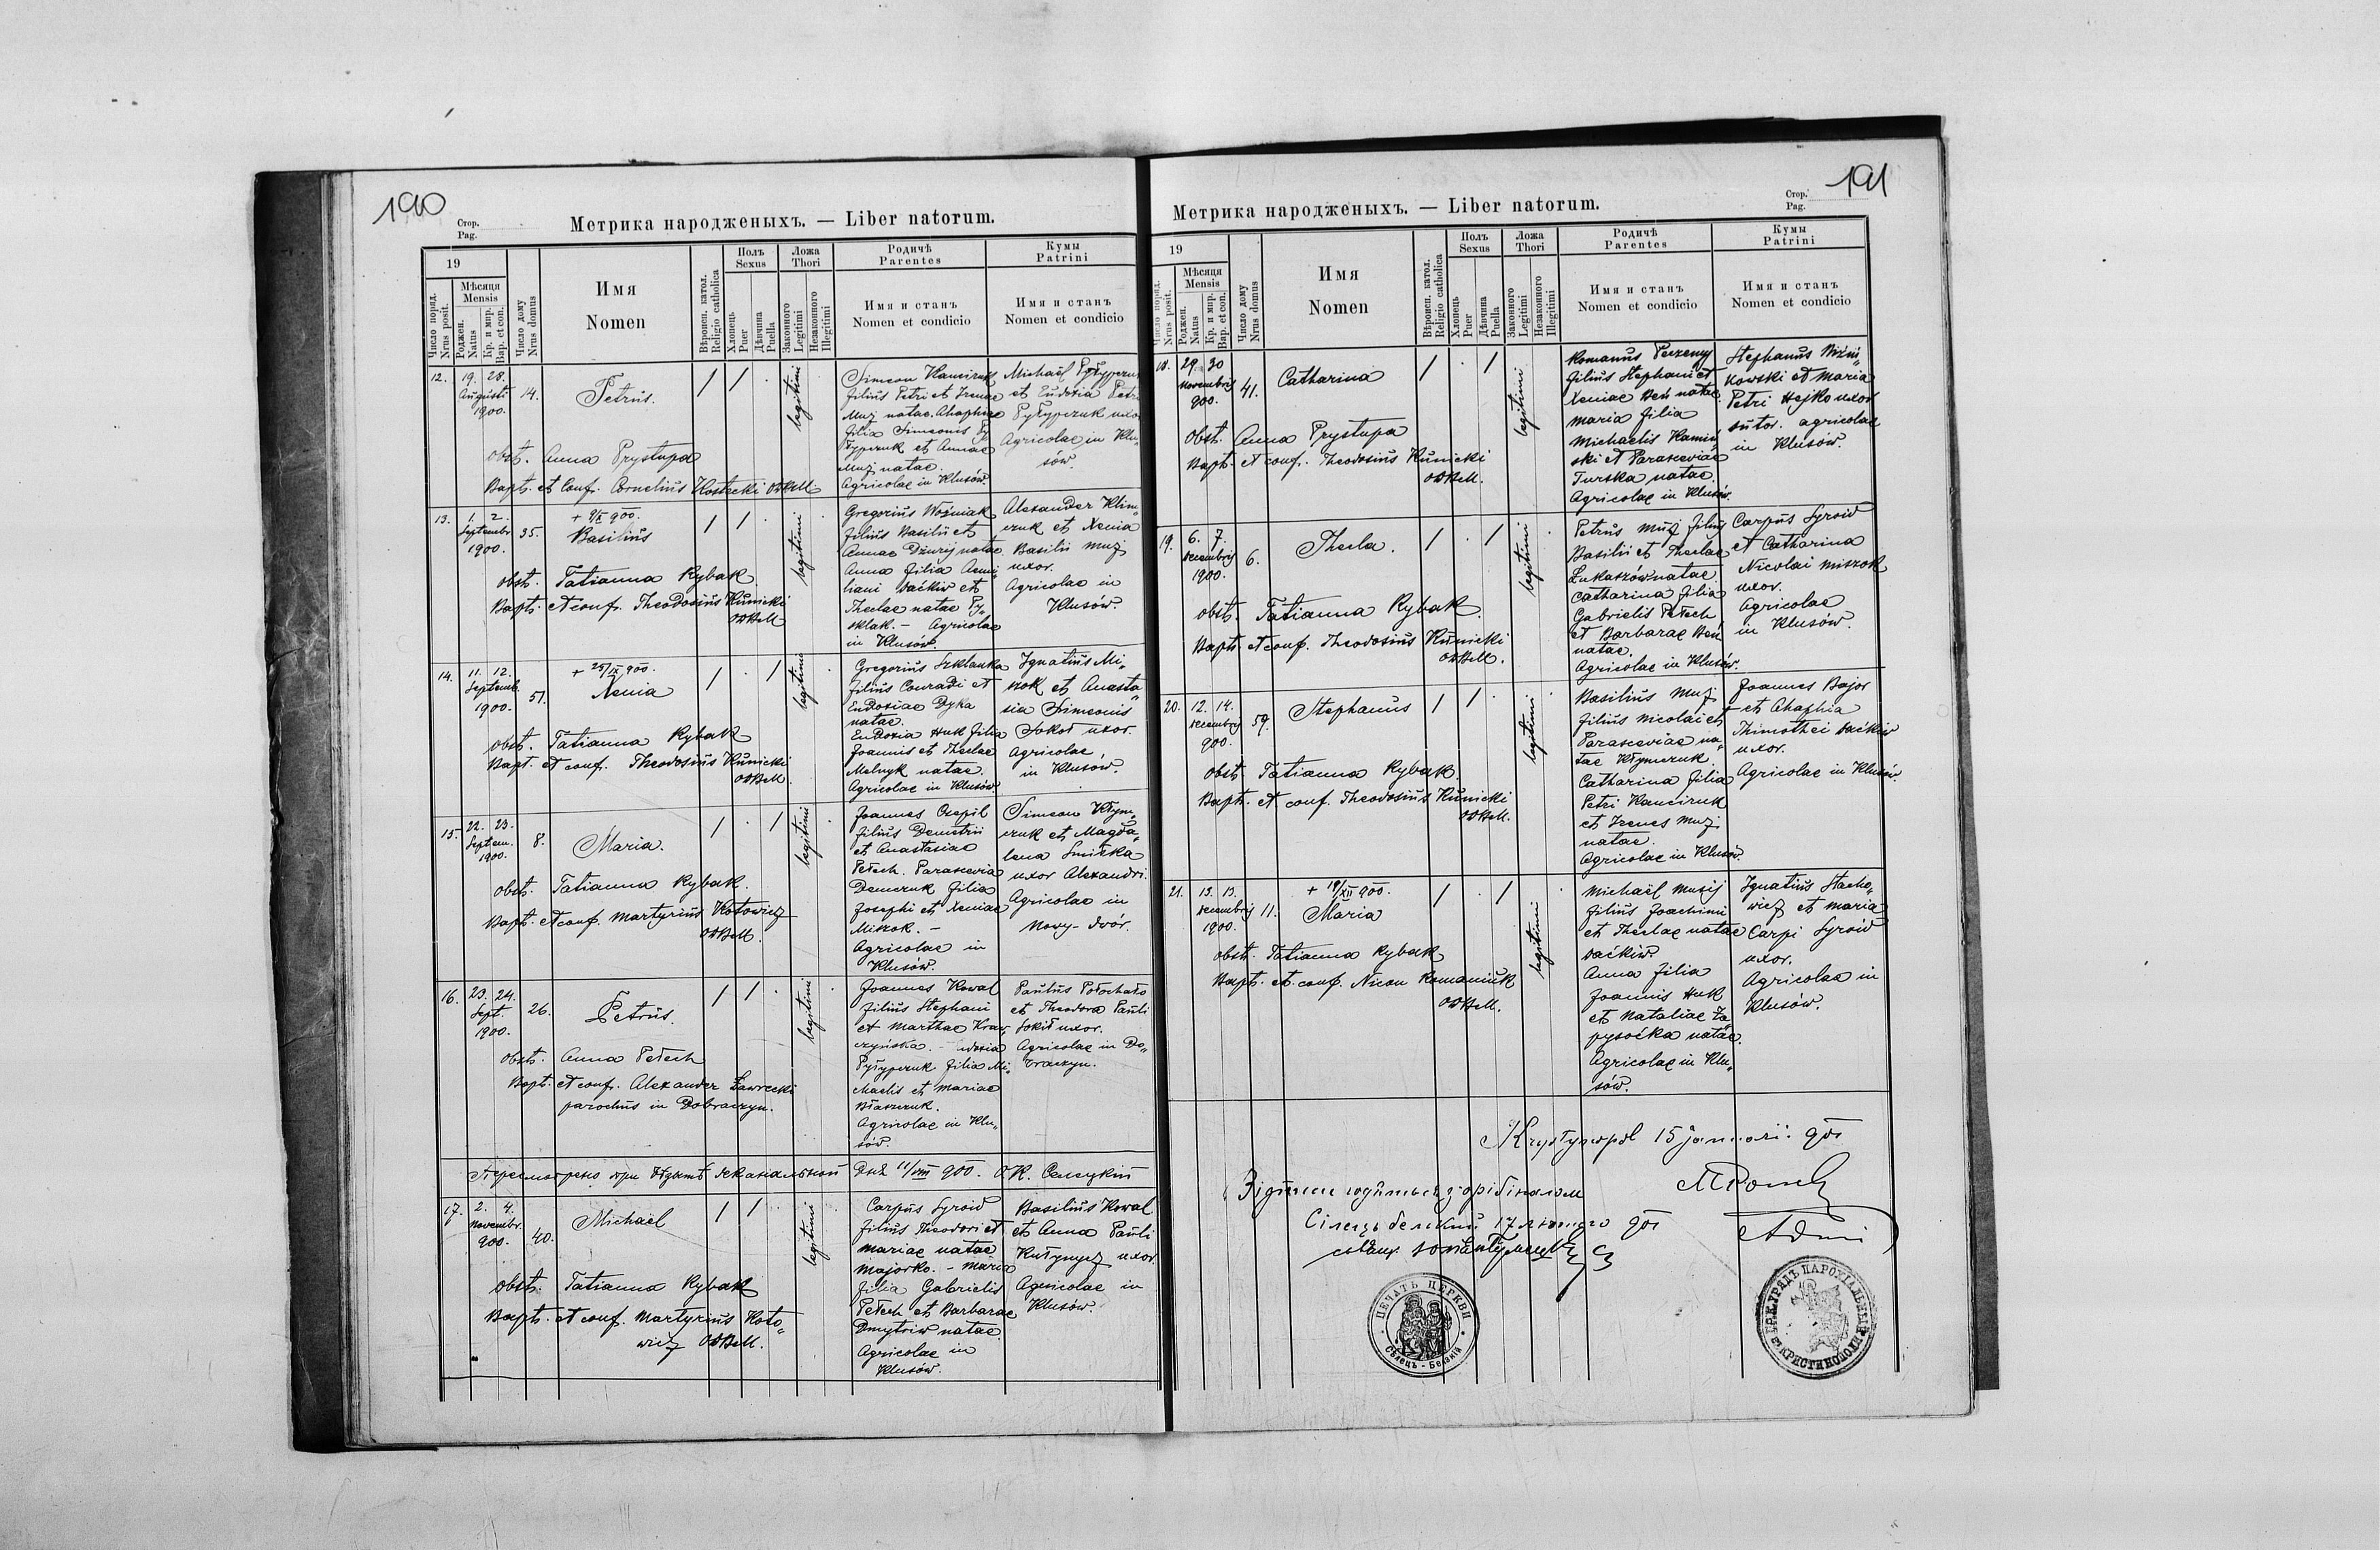 190
Стор.
Pag.
Метрика народженыхъ. — Liber natorum.
19
Число поряд.
Nrus posit.
Мѣсяця
Mensis
Роджен.
Natus
Кр. и мир.
Bap. et con.
Число дому
Nrus domus
Имя
Nomen
Вѣроисп. катол.
Religio catholica
Полъ
Sexus
Хлопець
Puer
Дѣвчина
Puella
Ложа
Thori
Законного
Legitimi
Незаконного
Illegitimi
Родичѣ
Parentes
Имя и станъ
Nomen et condicio
Кумы
Patrini
Имя и станъ
Nomen et condicio
12.
19. 28.
Augusti
1900.
14.
Petrus.
legitimi
Simeon Kanciruk
filius Petri et Irenae
Muz natae. Ahaphia
filia Simeonis Py„
łypczuk et Annae
Muz natae.
Agricolae in Klusów.
Michaël Pyłypczuk
et Eudoxia Petri
Pyłypczuk uxor
Agricolae in Klu„
sów.
obst. Anna Prystupa
Bapt. et Conf. Cornelius Kostecki OSBM
13.
1. 2.
Septembr
1900.
35.
+ 9/IX 900.
Basilius
legitimi
Gregorius Woźniak
filius Basilii et
Annae Dżurij natae
Anna filia Aemi„
liani Daćkiw et
Theclae natae Py„
sklak. – Agricolae
in Klusów.
Alexander Klim„
czuk et Xenia
Basilii Muz
uxor.
Agricolae in
Klusów.
obst. Tatianna Rybak.
Bapt. et conf. Theodosius Kunicki
OSBM
14.
11. 12.
Septemb.
1900.
51.
+ 25/IX 900.
Xenia
legitimi
Gregorius Szklanka
filius Conradi et
Eudoxiae Dyka
natae.
Eudoxia Huk filia
Joannis et Theclae
Melnyk natae
Agricolae in Klusów
Ignatius Mi„
szok et Anasta„
sia Simeonis
Sokoł uxor.
Agricolae
in Klusów.
obst. Tatianna Rybak
Bapt. et conf. Theodosius Kunicki
OSBM.
15.
22. 23.
Septem.
1900.
8.
Maria.
legitimi
Joannes Czepil
filius Demetrii
et Anastasiae
Petech. Parascevia
Demczuk filia
Josephi et Xeniae
Miszok. –
Agricolae in
Klusów.
Simeon Kłym„
czuk et Magda„
lena
uxor Alexandri.
Agricolae in
Nowy-dvór.
obst. Tatianna Rybak.
Bapt. et conf. Martyrius Kotowicz
OSBM.
16.
23. 24.
Sept.
1900.
26.
Petrus.
legitimi
Joannes Kowal
filius Stephani
et Marthae Kraw„
czyńska. – Eudoxia
Pyłypczuk filia Mi„
chaelis et Mariae
Błaszczuk.
Agricolae in Klu„
sów.
Paulus Połochało
et Theodora Pauli
Sokił uxor.
Agricolae in Do„
braczyn.
obst. Anna Petech
Bapt. et conf. Alexander Ławrecki
parochus in Dobraczyn.
Пересмотрено при деканальной Дня 11/VIII 900. О.К. Селецкій
17.
2. 4.
Novembr.
900.
40.
Michaël
legitimi
Carpus Syroid
filius Theodori et
Mariae natae
Majorko. – Maria
filia Gabrielis
Petech et Barbarae
Dmytriw natae
Agricolae in
Klusów.
Basilius Kowal
et Anna Pauli
Kułynycz uxor
Agricolae in
Klusów.
obst. Tatianna Rybak
Bapt. et conf. Martyrius Koto„
wicz OSBM.
191
Стор.
Pag.
Метрика народженыхъ. — Liber natorum.
19
Число поряд.
Nrus posit.
Мѣсяця
Mensis
Роджен.
Natus
Кр. и мир.
Bap. et con.
Число дому
Nrus domus
Имя
Nomen
Вѣроисп. катол.
Religio catholica
Полъ
Sexus
Хлопець
Puer
Дѣвчина
Puella
Ложа
Thori
Законного
Legitimi
Незаконного
Illegitimi
Родичѣ
Parentes
Имя и станъ
Nomen et condicio
Кумы
Patrini
Имя и станъ
Nomen et condicio
18.
29. 30
Novembris
900.
41.
Catharina
legitimi
Romanus
filius Stephani et
Xeniae Beń natae.
Maria filia
Michaelis Kamiń„
ski et Parasceviae
Turska natae.
Agricolae in Klusów.
Stephanus Wiźni„
kowski et Maria
Petri Hejko uxor
sutor. agricolae
in Klusów.
Obst. Anna Prystupa
Bapt. et conf. Theodosius Kunicki
OSBM.
19.
6. 7.
Decembris
1900.
6.
Thecla.
legitimi
Petrus Muz filius
Basilii et Theclae
Łukaszów natae.
Catharina filia
Gabrielis Petech
et Barbarae Beń
natae.
Agricolae in Klusów.
Carpus Syroid
et Catharina
Nicolai Miszok
uxor.
Agricolae
in Klusów.
obst. Tatianna Rybak.
Bapt. et conf. Theodosius Kunicki
OSBM.
20.
12. 14.
Decembris
900.
59.
Stephanus
legitimi
Basilius Muz
filius Nicolai et
Parasceviae na„
tae Kłymczuk
Catharina filia
Petri Kanciruk
et Irenes Muz
natae.
Agricolae in Klusów.
Joannes Bajor
et Ahaphia
Thimothei Daćkiw
uxor.
Agricolae in Klusów.
Obst. Tatianna Rybak.
Bapt. et conf. Theodosius Kunicki
OSBM.
21.
13. 13.
Decembris
1900.
11.
+ 19/XII 900.
Maria
legitimi
Michaël Musij
filius Joachimi
et Theclae natae
Daćkiw.
Anna filia
Joannis Huk
et Nataliae Za„
pysoćka natae.
Agricolae in Klu„
sów.
Ignatius Stacho„
wicz et Maria
Carpi Syroid
uxor.
Agricolae in
Klusów.
obst. Tatianna Rybak
Bapt. et conf. Nicon Romaniuk
OSBM.
Krystynopol 15 januarii 901
з орігіналом
Сілець белзкий 17 лютого 901
ПЕЧАТЬ ЦЕРКВИ
Сѣлець - Белзкій
УРЯДЪ ПАРОХІАЛЬНЫЙ